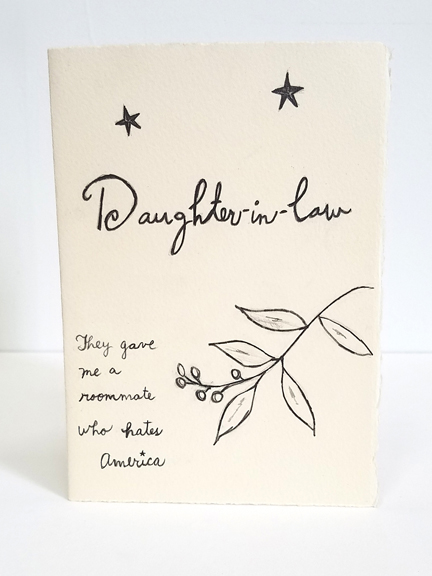 Daughter-in-law
They gave
me a
roommate
who hates
America